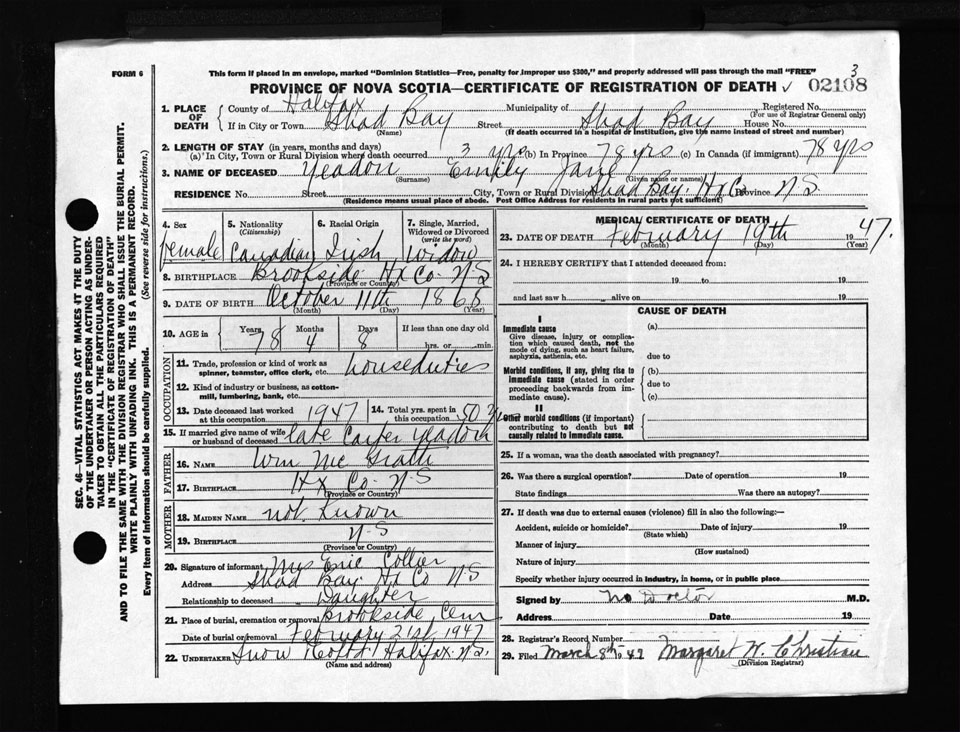 FORM 6
This form if placed in an envelope, marked "Dominion Statistics—Free, penalty for improper use $300," and properly addressed will pass through the mail "FREE"
3
PROVINCE OF NOVA SCOTIA—CERTIFICATE OF REGISTRATION OF DEATH ✓ 02108
1. PLACE OF DEATH
County of Halifax Municipality of Shad Bay Registered No.
(For use of Registrar General only)
If in City or Town Shad Bay Street House No.
(Name) (If death occurred in a hospital or institution, give the name instead of street and number)
2. LENGTH OF STAY (in years, months and days)
(a) In City, Town or Rural Division where death occurred 3 yrs (b) In Province 78 yrs (c) In Canada (if immigrant) 78 yrs
3. NAME OF DECEASED Yeadon Emily Jane
(Surname) (Given name or names)
RESIDENCE No. Street City, Town or Rural Division Shad Bay. Hx Co. Province N S
(Residence means usual place of abode. Post Office Address for residents in rural parts not sufficient)
4. Sex 5. Nationality (Citizenship) 6. Racial Origin 7. Single, Married, Widowed or Divorced (write the word)
female Canadian Irish Widow
8. BIRTHPLACE Brookside Hx Co. N S
(Province or Country)
9. DATE OF BIRTH October 11th 1868
(Month) (Day) (Year)
10. AGE in Years Months Days If less than one day old
78 4 8 hrs. or min.
OCCUPATION
11. Trade, profession or kind of work as spinner, teamster, office clerk, etc. houseduties
12. Kind of industry or business, as cotton-mill, lumbering, bank, etc.
13. Date deceased last worked at this occupation 1947 14. Total yrs. spent in this occupation 50 yrs
15. If married give name of wife or husband of deceased late Casper Yeadon
FATHER
16. NAME Wm Mc Grath
17. BIRTHPLACE Hx Co. N S
(Province or Country)
MOTHER
18. MAIDEN NAME not Known
19. BIRTHPLACE N S
(Province or Country)
20. Signature of informant Mrs Eric Collier
Address Shad Bay. Hx Co N S
Relationship to deceased Daughter
21. Place of burial, cremation or removal Brookside Cem
Date of burial or removal February 21st 1947
22. UNDERTAKER Snow Halifax. N.S.
(Name and address)
MEDICAL CERTIFICATE OF DEATH
23. DATE OF DEATH February 19th 1947.
(Month) (Day) (Year)
24. I HEREBY CERTIFY that I attended deceased from:
19 to 19
and last saw h alive on 19
CAUSE OF DEATH
I
Immediate cause
Give disease, injury or complication which caused death, not the mode of dying, such as heart failure, asphyxia, asthenia, etc.
(a)
due to
Morbid conditions, if any, giving rise to immediate cause (stated in order proceeding backwards from immediate cause).
(b)
due to
(c)
II
Other morbid conditions (if important) contributing to death but not causally related to immediate cause.
25. If a woman, was the death associated with pregnancy?
26. Was there a surgical operation? Date of operation 19
State findings Was there an autopsy?
27. If death was due to external causes (violence) fill in also the following:—
Accident, suicide or homicide? Date of injury 19
(State which)
Manner of injury
(How sustained)
Nature of injury
Specify whether injury occurred in industry, in home, or in public place
Signed by no Doctor M.D.
Address Date 19
28. Registrar's Record Number
29. Filed March 8th 1947 Margaret W. Christian
(Division Registrar)
SEC. 46—VITAL STATISTICS ACT MAKES IT THE DUTY
OF THE UNDERTAKER OR PERSON ACTING AS UNDER-
TAKER TO OBTAIN ALL THE PARTICULARS REQUIRED
IN THE "CERTIFICATE OF REGISTRATION OF DEATH"
AND TO FILE THE SAME WITH THE DIVISION REGISTRAR WHO SHALL ISSUE THE BURIAL PERMIT.
WRITE PLAINLY WITH UNFADING INK. THIS IS A PERMANENT RECORD.
Every item of information should be carefully supplied. (See reverse side for instructions.)